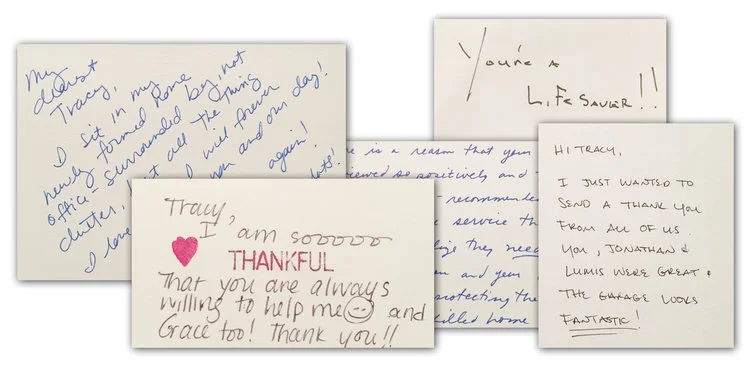 My
dearest
Tracy,
I sit in my
newly formed home
office - surrounded by, not
clutter, but all the thing
I will forever
and our day!
I love
again!
You're a
LifeSaver!!
is a reason that your
so positively and
- recommende
service th
they need
and your
protecting the
killed home
Tracy,
I am sooooo
THANKFUL
That you are always
willing to help me and
Grace too! Thank you!!
HI TRACY,
I JUST WANTED TO
SEND A THANK YOU
FROM ALL OF US.
YOU, JONATHAN &
LUMIS WERE GREAT &
THE GARAGE LOOKS
FANTASTIC!